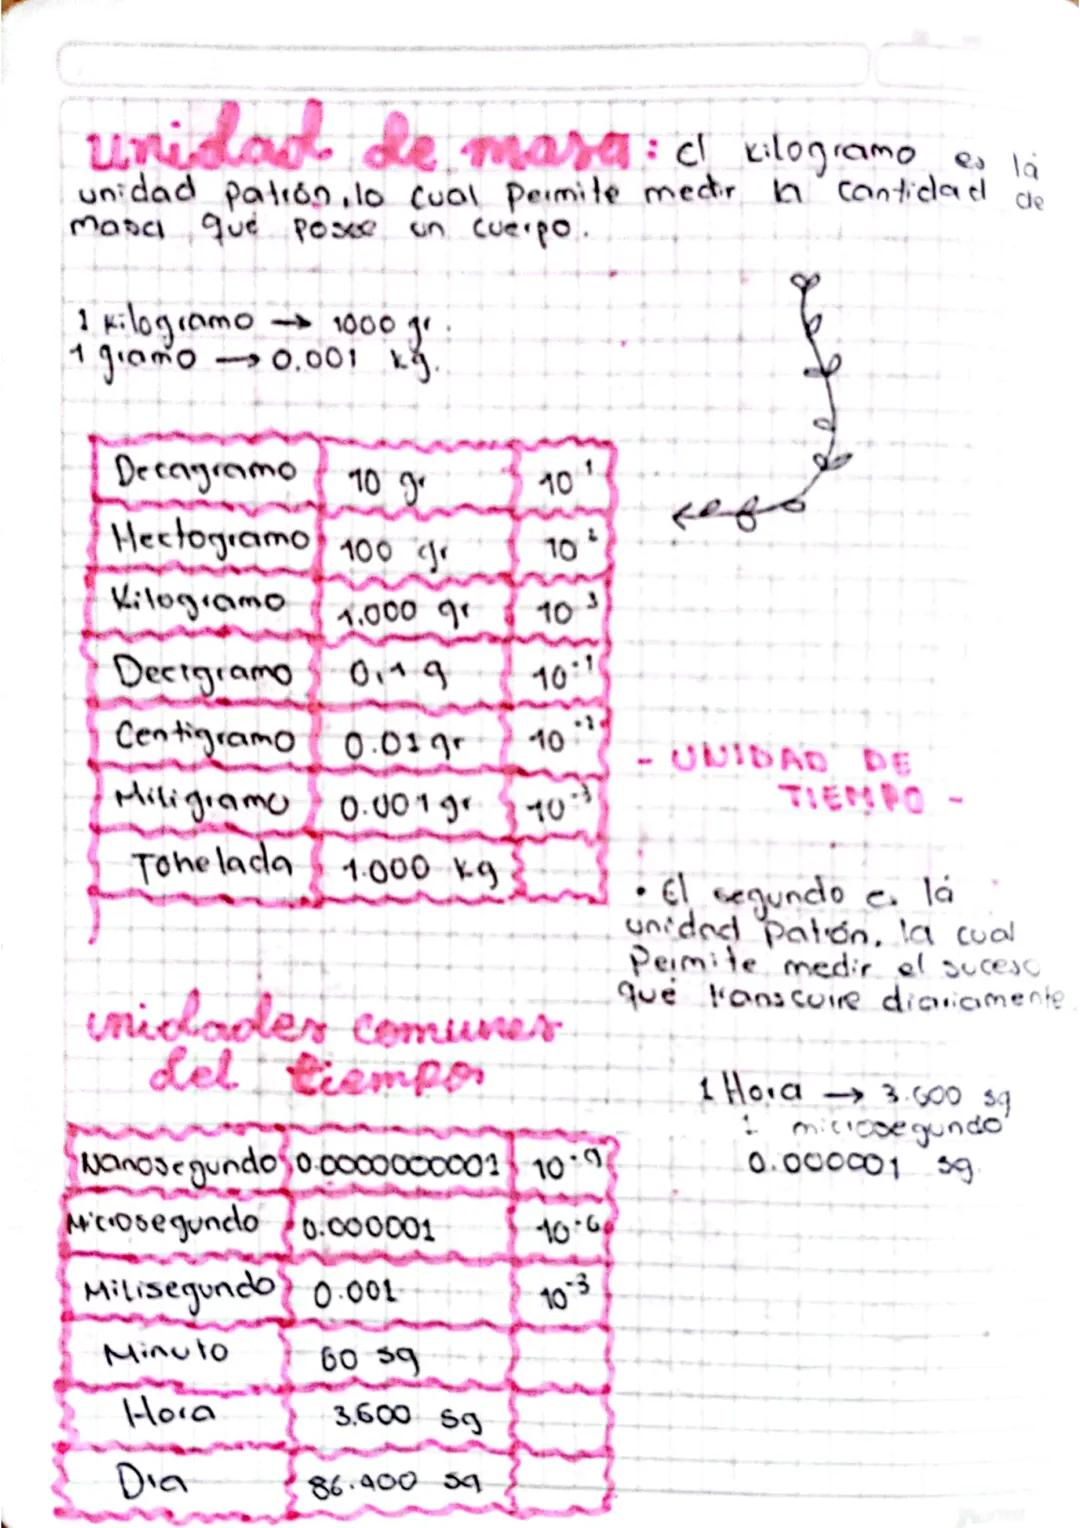 unidad de masa: el kilogramo es la
unidad patrón, lo cual permite medir la cantidad de
masa que posee un cuerpo.
1 kilogramo → 1000 gr.
1 gramo → 0.001 kg.
Decagramo 10 gr 10¹
Hectogramo 100 gr 10²
Kilogramo 1.000 gr 10³
Decigramo 0,1 g 10⁻¹
Centigramo 0.01 gr 10⁻²
Miligramo 0.001 gr 10⁻³
Tonelada 1.000 kg
- UNIDAD DE
TIEMPO -
• El segundo es lá
unidad patrón, la cual
permite medir el suceso
qué transcurre diariamente
1 Hora → 3.600 sg
1 microsegundo
0.000001 sg.
unidades comunes
del tiempo
Nanosegundo 0.0000000001 10⁻⁹
Microsegundo 0.000001 10⁻⁶
Milisegundo 0.001 10⁻³
Minuto 60 sg
Hora 3.600 sg
Dia 86.400 sg